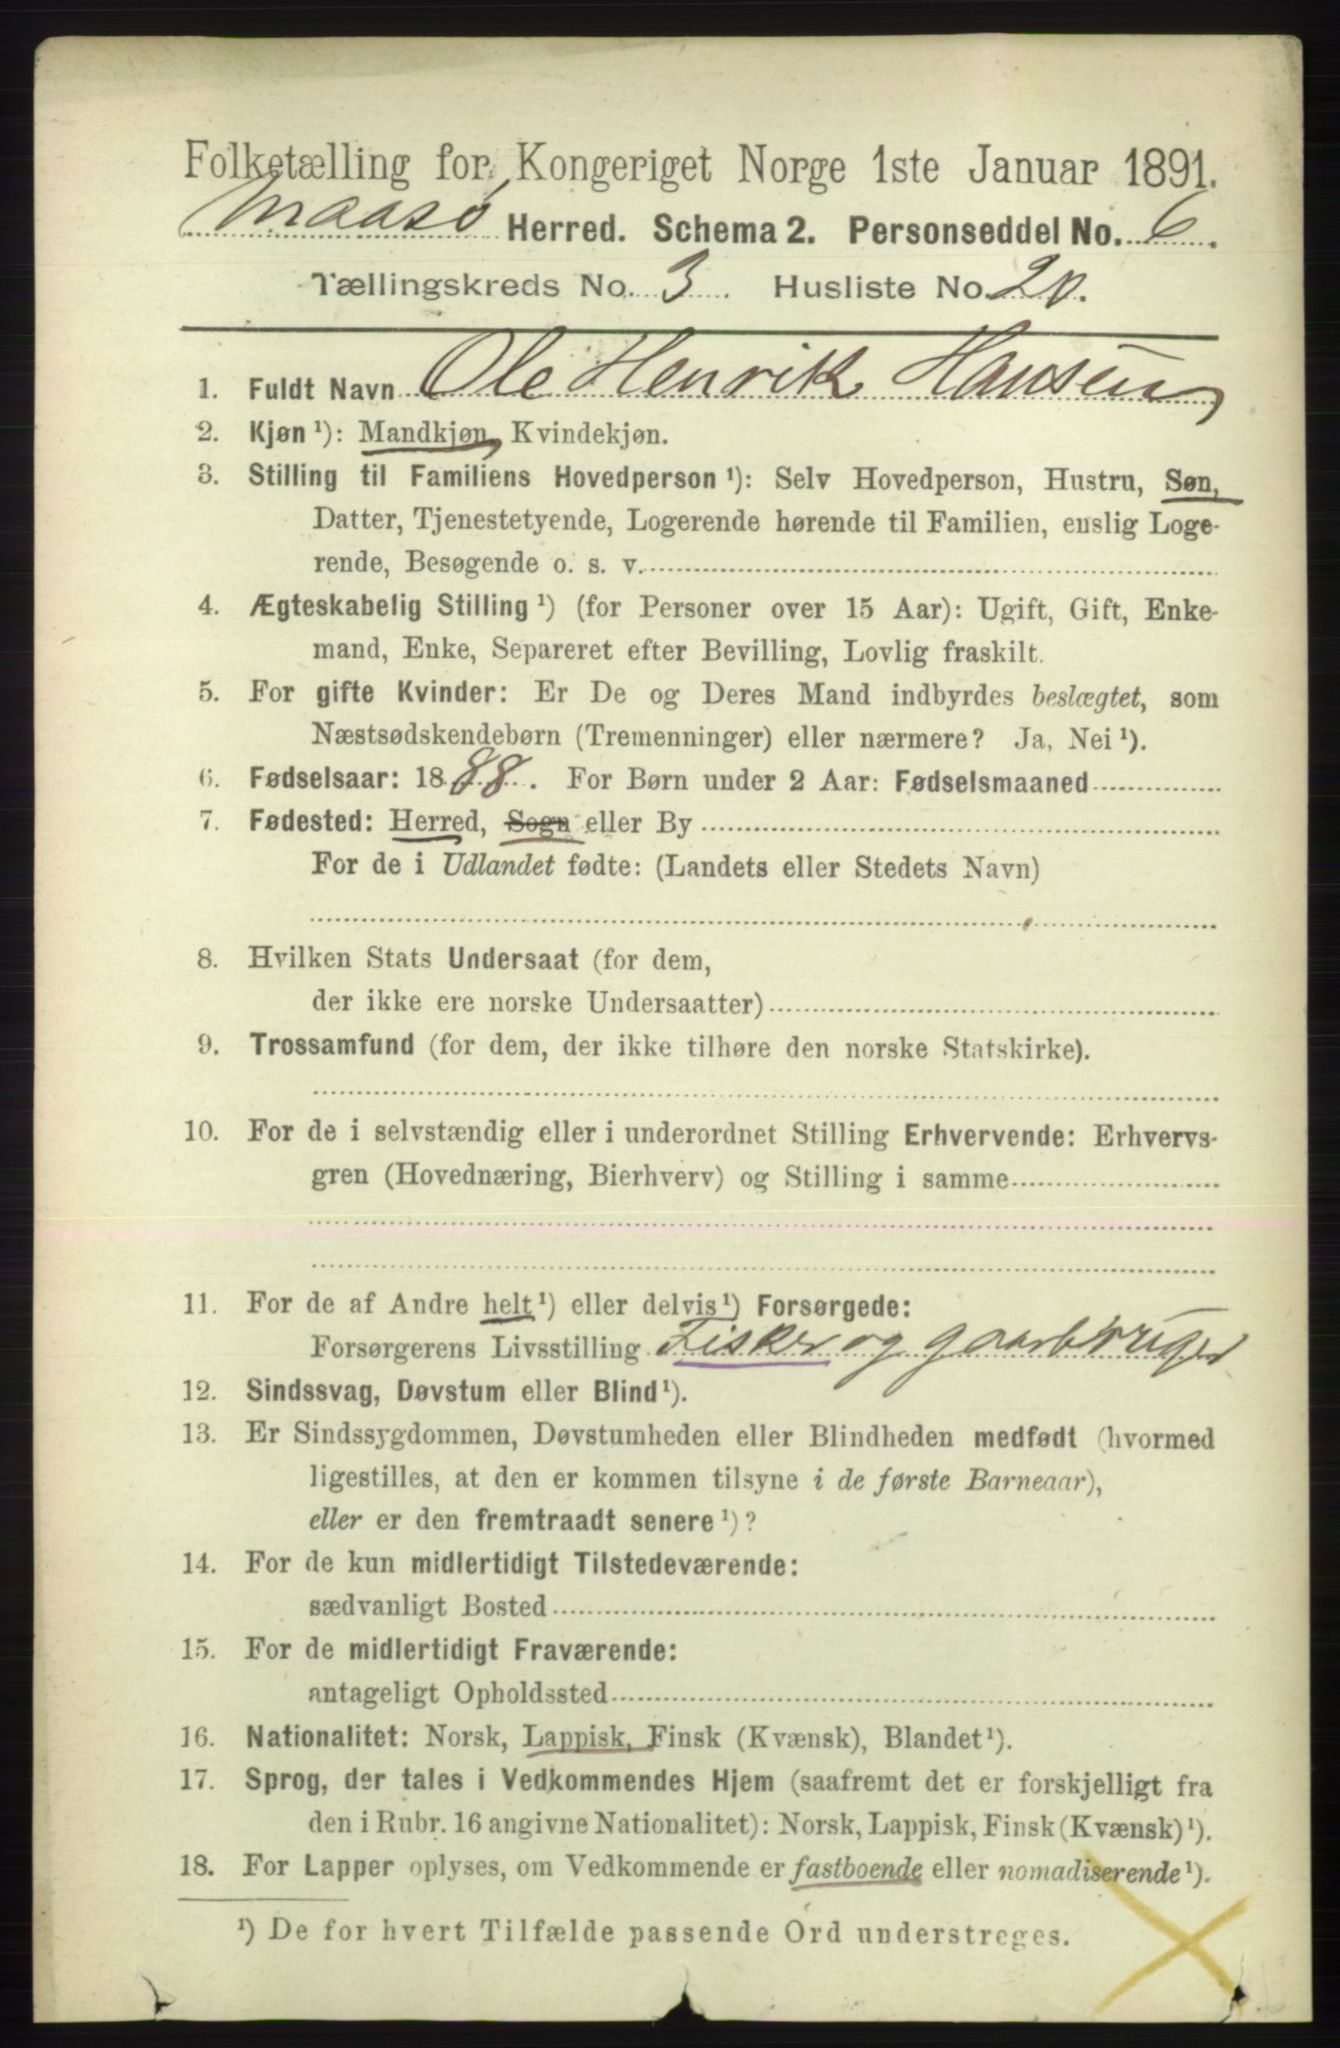 Folketælling for Kongeriget Norge 1ste Januar 1891.
Maasø Herred. Schema 2. Personseddel No. 6.
Tællingskreds No. 3. Husliste No. 20.
1. Fuldt Navn Ole Henrik Hansen
2. Kjøn ¹): Mandkjøn, Kvindekjøn.
3. Stilling til Familiens Hovedperson ¹): Selv Hovedperson, Hustru, Søn,
Datter, Tjenestetyende, Logerende hørende til Familien, enslig Loge-
rende, Besøgende o. s. v.
4. Ægteskabelig Stilling ¹) (for Personer over 15 Aar): Ugift, Gift, Enke-
mand, Enke, Separeret efter Bevilling, Lovlig fraskilt.
5. For gifte Kvinder: Er De og Deres Mand indbyrdes beslægtet, som
Næstsødskendebørn (Tremenninger) eller nærmere? Ja, Nei ¹).
6. Fødselsaar: 1888. For Børn under 2 Aar: Fødselsmaaned
7. Fødested: Herred, Sogn eller By
For de i Udlandet fødte: (Landets eller Stedets Navn)
8. Hvilken Stats Undersaat (for dem,
der ikke ere norske Undersaatter)
9. Trossamfund (for dem, der ikke tilhøre den norske Statskirke).
10. For de i selvstændig eller i underordnet Stilling Erhvervende: Erhvervs-
gren (Hovednæring, Bierhverv) og Stilling i samme
11. For de af Andre helt ¹) eller delvis ¹) Forsørgede:
Forsørgerens Livsstilling Fisker og gaardbruger
12. Sindssvag, Døvstum eller Blind ¹).
13. Er Sindssygdommen, Døvstumheden eller Blindheden medfødt (hvormed
ligestilles, at den er kommen tilsyne i de første Barneaar),
eller er den fremtraadt senere ¹)?
14. For de kun midlertidigt Tilstedeværende:
sædvanligt Bosted
15. For de midlertidigt Fraværende:
antageligt Opholdssted
16. Nationalitet: Norsk, Lappisk, Finsk (Kvænsk), Blandet ¹).
17. Sprog, der tales i Vedkommendes Hjem (saafremt det er forskjelligt fra
den i Rubr. 16 angivne Nationalitet): Norsk, Lappisk, Finsk (Kvænsk) ¹).
18. For Lapper oplyses, om Vedkommende er fastboende eller nomadiserende ¹).
¹) De for hvert Tilfælde passende Ord understreges.